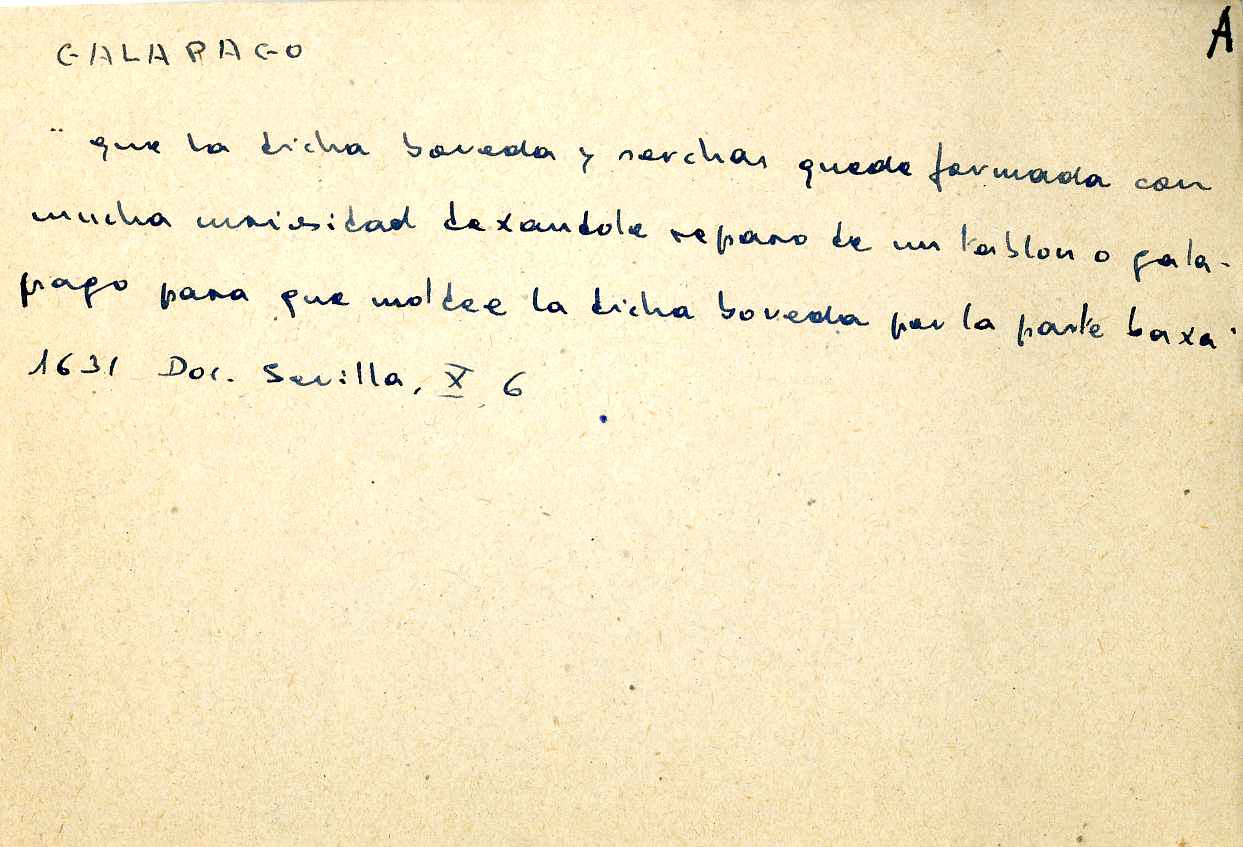 A
GALAPAGO
"que la dicha boveda y serchas quede formada con
mucha curiosidad dexandole reparo de un tablon o gala-
pago para que moldee la dicha boveda por la parte baxa"
1631 Doc. Sevilla, X 6